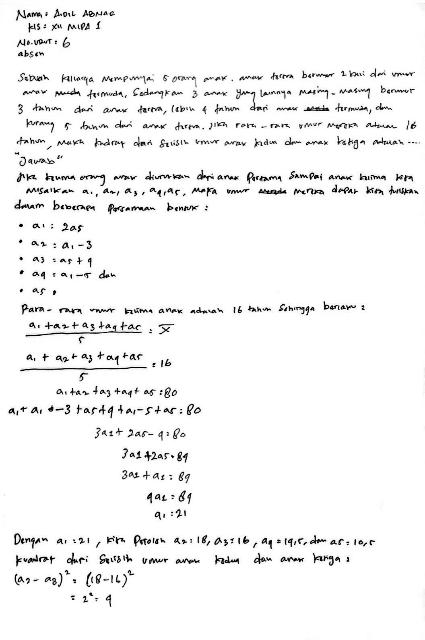 Nama : AIDIL ABNAE
Kls : XII MIPA 1
No.urut : 6
absen
Sebuah keluarga mempunyai 5 orang anak. anak tertua berumur 2 kali dari umur
anak termuda, Sedangkan 3 anak yang lainnya masing-masing berumur
3 tahun dari anak tertua, lebih 4 tahun dari anak termuda, dan
kurang 5 tahun dari anak tertua. Jika rata-rata umur mereka adalah 16
tahun, maka kuadrat dari selisih umur anak kedua dan anak ketiga adalah ....
"Jawab"
Jika kelima orang anak diurutkan dari anak pertama sampai anak kelima kita
misalkan a1, a2, a3, a4, a5, maka umur mereka dapat kita tuliskan
dalam beberapa persamaan bentuk :
• a1 : 2a5
• a2 = a1 - 3
• a3 = a5 + 4
• a4 = a1 - 5 dan
• a5 .
Rata-rata umur kelima anak adalah 16 tahun sehingga berlaku :
a1 + a2 + a3 + a4 + a5 / 5 = x̄
a1 + a2 + a3 + a4 + a5 / 5 = 16
a1 + a2 + a3 + a4 + a5 = 80
a1 + a1 - 3 + a5 + 4 + a1 - 5 + a5 = 80
3a1 + 2a5 - 4 = 80
3a1 + 2a5 = 84
3a1 + a1 = 84
4a1 = 84
a1 = 21
Dengan a1 = 21, kita peroleh a2 = 18, a3 = 16, a4 = 14,5, dan a5 = 10,5
kuadrat dari selisih umur anak kedua dan anak ketiga :
(a2 - a3)² = (18-16)²
= 2² = 4